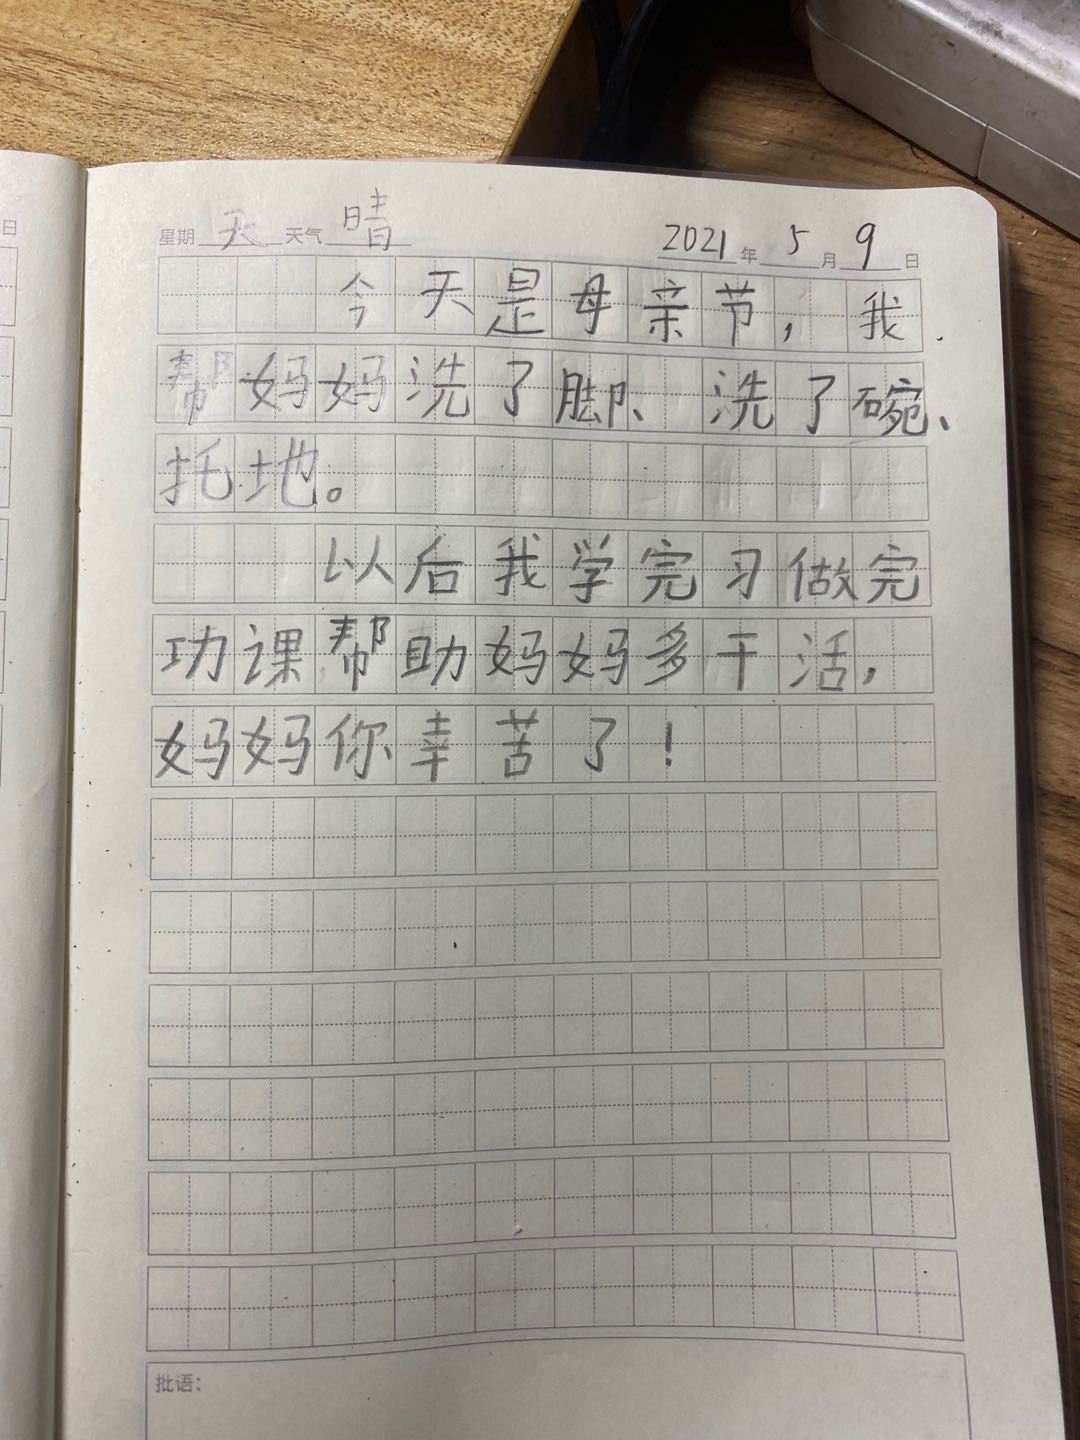 日
星期 天 天气 晴 2021 年 5 月 9 日
今天是母亲节，我
帮妈妈洗了脚、洗了碗、
托地。
以后我学完习做完
功课帮助妈妈多干活，
妈妈你幸苦了！
批语：